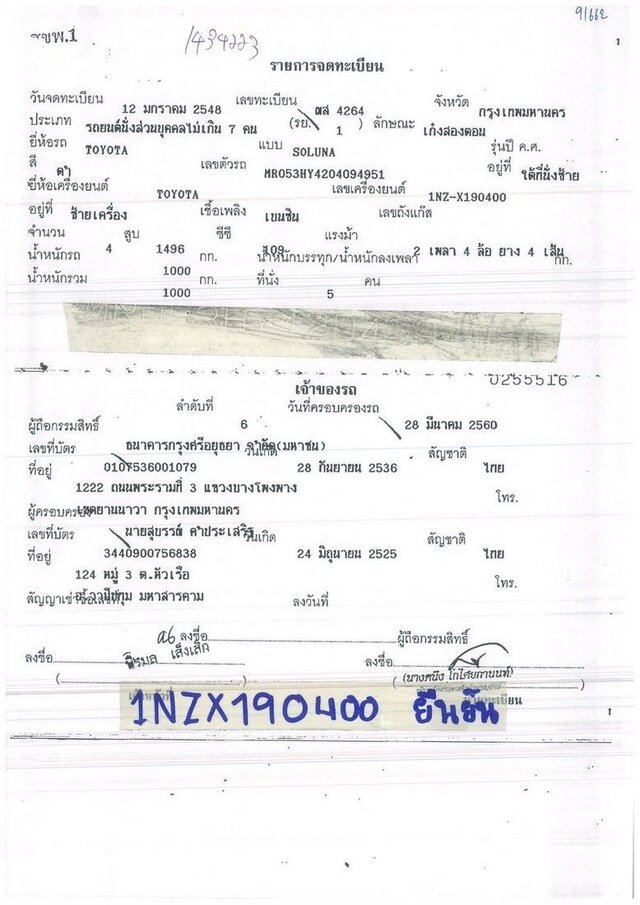 91662
ขขพ.1
1434223
1
รายการจดทะเบียน
วันจดทะเบียน 12 มกราคม 2548 เลขทะเบียน ๗ส 4264 จังหวัด กรุงเทพมหานคร
ประเภท รถยนต์นั่งส่วนบุคคลไม่เกิน 7 คน (รย. 1 ) ลักษณะ เก๋งสองตอน
ยี่ห้อรถ TOYOTA แบบ SOLUNA รุ่นปี ค.ศ.
สี ดำ เลขตัวรถ MR053HY4204094951 อยู่ที่ ใต้ที่นั่งซ้าย
ยี่ห้อเครื่องยนต์ TOYOTA เลขเครื่องยนต์ 1NZ-X190400
อยู่ที่ ซ้ายเครื่อง เชื้อเพลิง เบนซิน เลขถังแก๊ส
จำนวน 4 สูบ 1496 ซีซี 109 แรงม้า 2 เพลา 4 ล้อ ยาง 4 เส้น
น้ำหนักรถ 1000 กก. น้ำหนักบรรทุก/น้ำหนักลงเพลา กก.
น้ำหนักรวม 1000 กก. ที่นั่ง 5 คน
0255516
เจ้าของรถ
ลำดับที่ 6 วันที่ครอบครองรถ 28 มีนาคม 2560
ผู้ถือกรรมสิทธิ์ ธนาคารกรุงศรีอยุธยา จำกัด(มหาชน)
เลขที่บัตร 0107536001079 วันเกิด 28 กันยายน 2536 สัญชาติ ไทย
ที่อยู่ 1222 ถนนพระรามที่ 3 แขวงบางโพงพาง
เขตยานนาวา กรุงเทพมหานคร โทร.
ผู้ครอบครอง นายสุบรรณ์ คำประเสริฐ
เลขที่บัตร 3440900756838 วันเกิด 24 มิถุนายน 2525 สัญชาติ ไทย
ที่อยู่ 124 หมู่ 3 ต.หัวเรือ
อ.วาปีปทุม มหาสารคาม โทร.
สัญญาเช่าซื้อเลขที่ ลงวันที่
ลงชื่อ ผู้ถือกรรมสิทธิ์
ลงชื่อ ลงชื่อ
( ) ( )
นายทะเบียน
1NZX190400 ยืนยัน
1